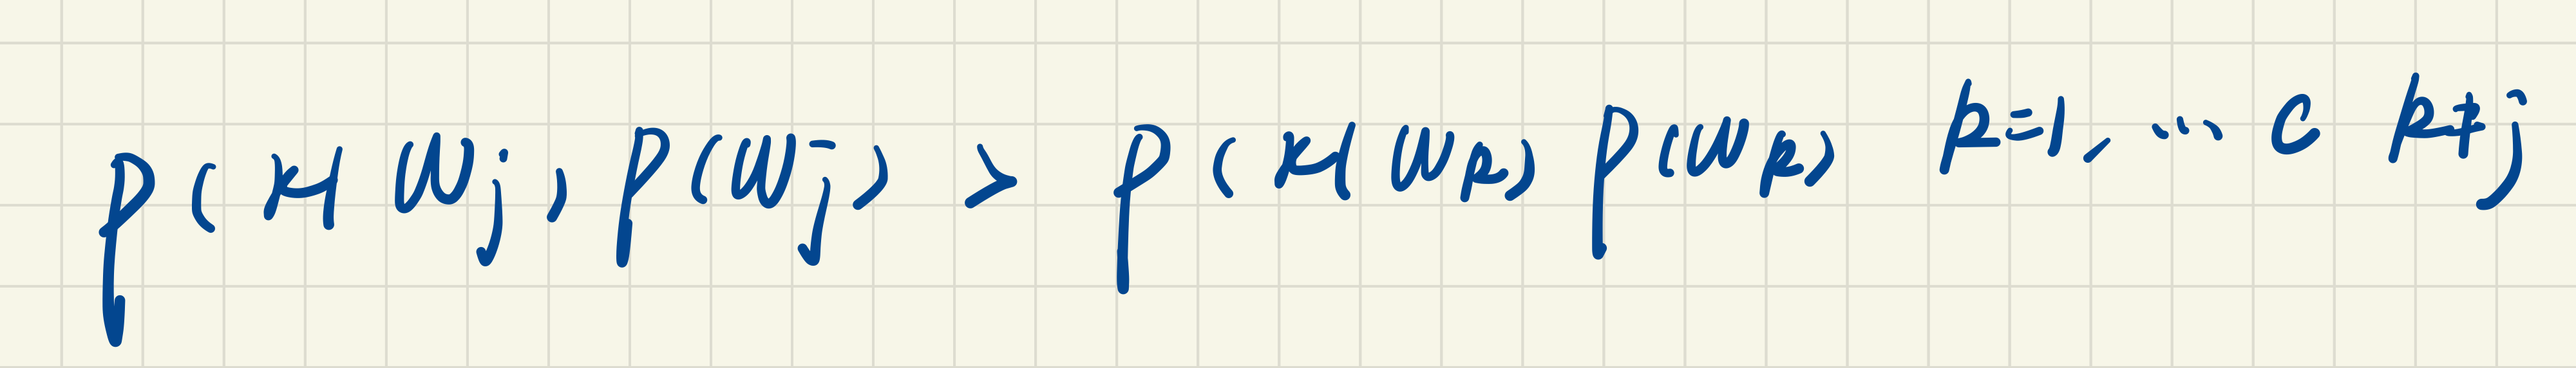 p(x|w_j)p(w_j) > p(x|w_k)p(w_k) k=1,...c k≠j